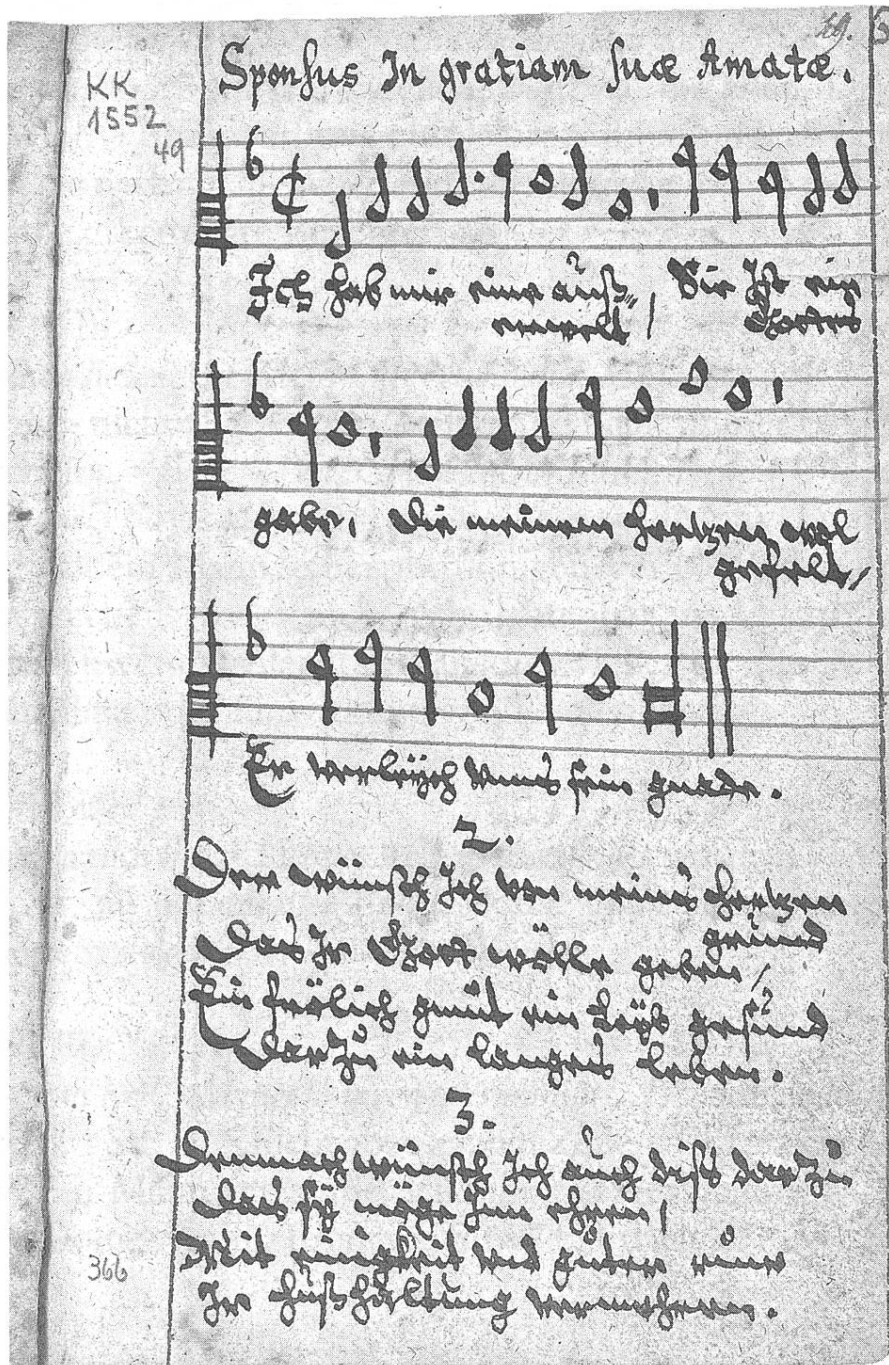 49. 5
Sponsus In gratiam suæ Amatæ.
KK
1552
49
Ich hab mir eine auß„
erwelt / Sie Ist ein
Gottes
gabe, die meinem hertzen wol
gefelt /
Er verleÿch vnns sein gnade.
2.
Drer wünsch Ich von meines hertzen
grund
Das Jr Gott wölle geben /
Ein frölich gmüt ein Leÿb gesund
Darzu ein langes Leben.
3.
Demnach wünsch Ich auch diß darzu
Das sÿ möge Inn ehren /
Mit einigkeit vnd guter ruwe
Ir Haußhaltung vermehren.
366